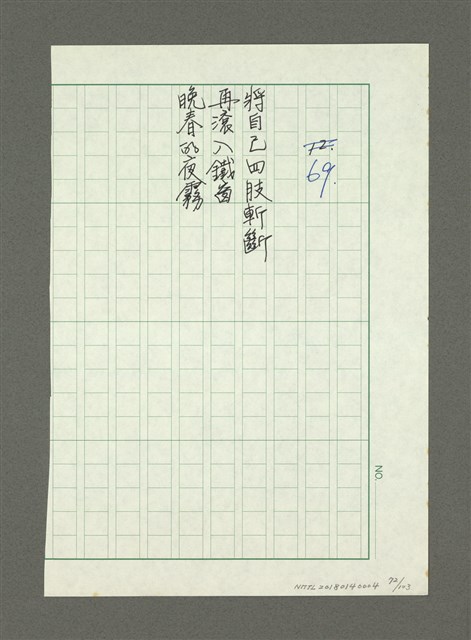 72.
69.
將自己四肢斬斷
再滾入鐵齒
晚春的夜霧
NO.
NMTL20180140004
72/103